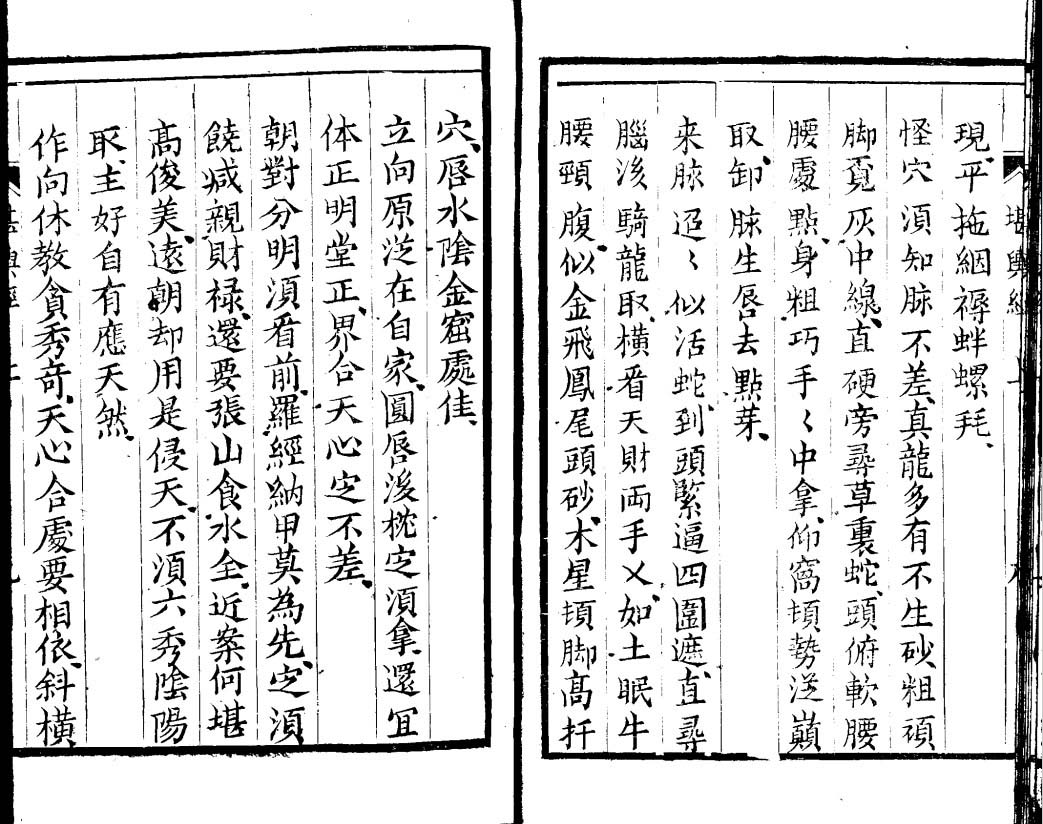 堪輿經 上 八
現、平拖絪褥蚌螺玤、
怪穴湏知脉不差、真龍多有不生砂、粗頑
脚覔灰中線、直硬旁尋草裏蛇、頭俯軟腰
腰處點、身粗巧手〻中拿、仰窩頓勢従巔
取卸、脉生唇去點芽、
来脉迢〻似活蛇、到頭緊逼四圍遮、直尋
腦後騎龍取、橫看天財両手乂、如土眠牛
腰頸腹、似金飛鳳尾頭砂、木星頓脚高扦
穴、唇水陰金窟處佳、
立向原従在自家、圓唇後枕定湏拿、還宜
体正明堂正、界合天心定不差、
朝對分明湏看前、羅經納甲莫為先、定湏
饒减親財禄、還要張山食水全、近案何堪
高俊美、遠朝却用是侵天、不湏六秀陰陽
取、主好自有應天然、
作向休教貪秀竒、天心合處要相依、斜橫
堪輿經 上 九